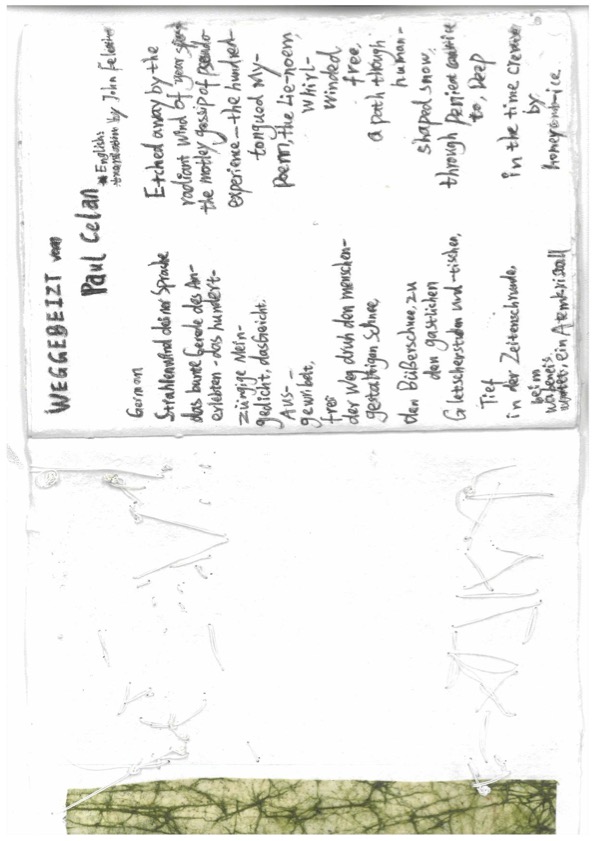 WEGGEBEIZT von
Paul Celan
German
Strahlenwind deiner Sprache
das bunte Gerede des An-
erlebten - das hundert-
züngige Mein-
gedicht, das Genicht.
Aus-
gewirbelt,
frei
der Weg druh den menschen-
gestaltigen Schnee,
den Büßerschnee, zu
den gastlichen
Gletscherstuben und -tischen.
Tief
in der Zeitenschrunde,
beim
Wabeneis
wartet, ein Atemkristall
* English
translation by John
Etched away by the
radiant wind of your
the motley gossip of pseudo-
experience - the hundred-
tongued My-
poem, the Lie-noem,
Whirl-
winded
free,
a path though
human-
shaped snow,
through penient
to, Deep
in the time crevasse
by
honeycomb-ice.